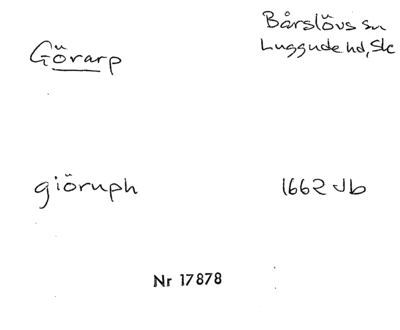 Görarp
Bårslövs sn
Luggude hd, Skc
giöruph
1662 Jb
Nr 17878